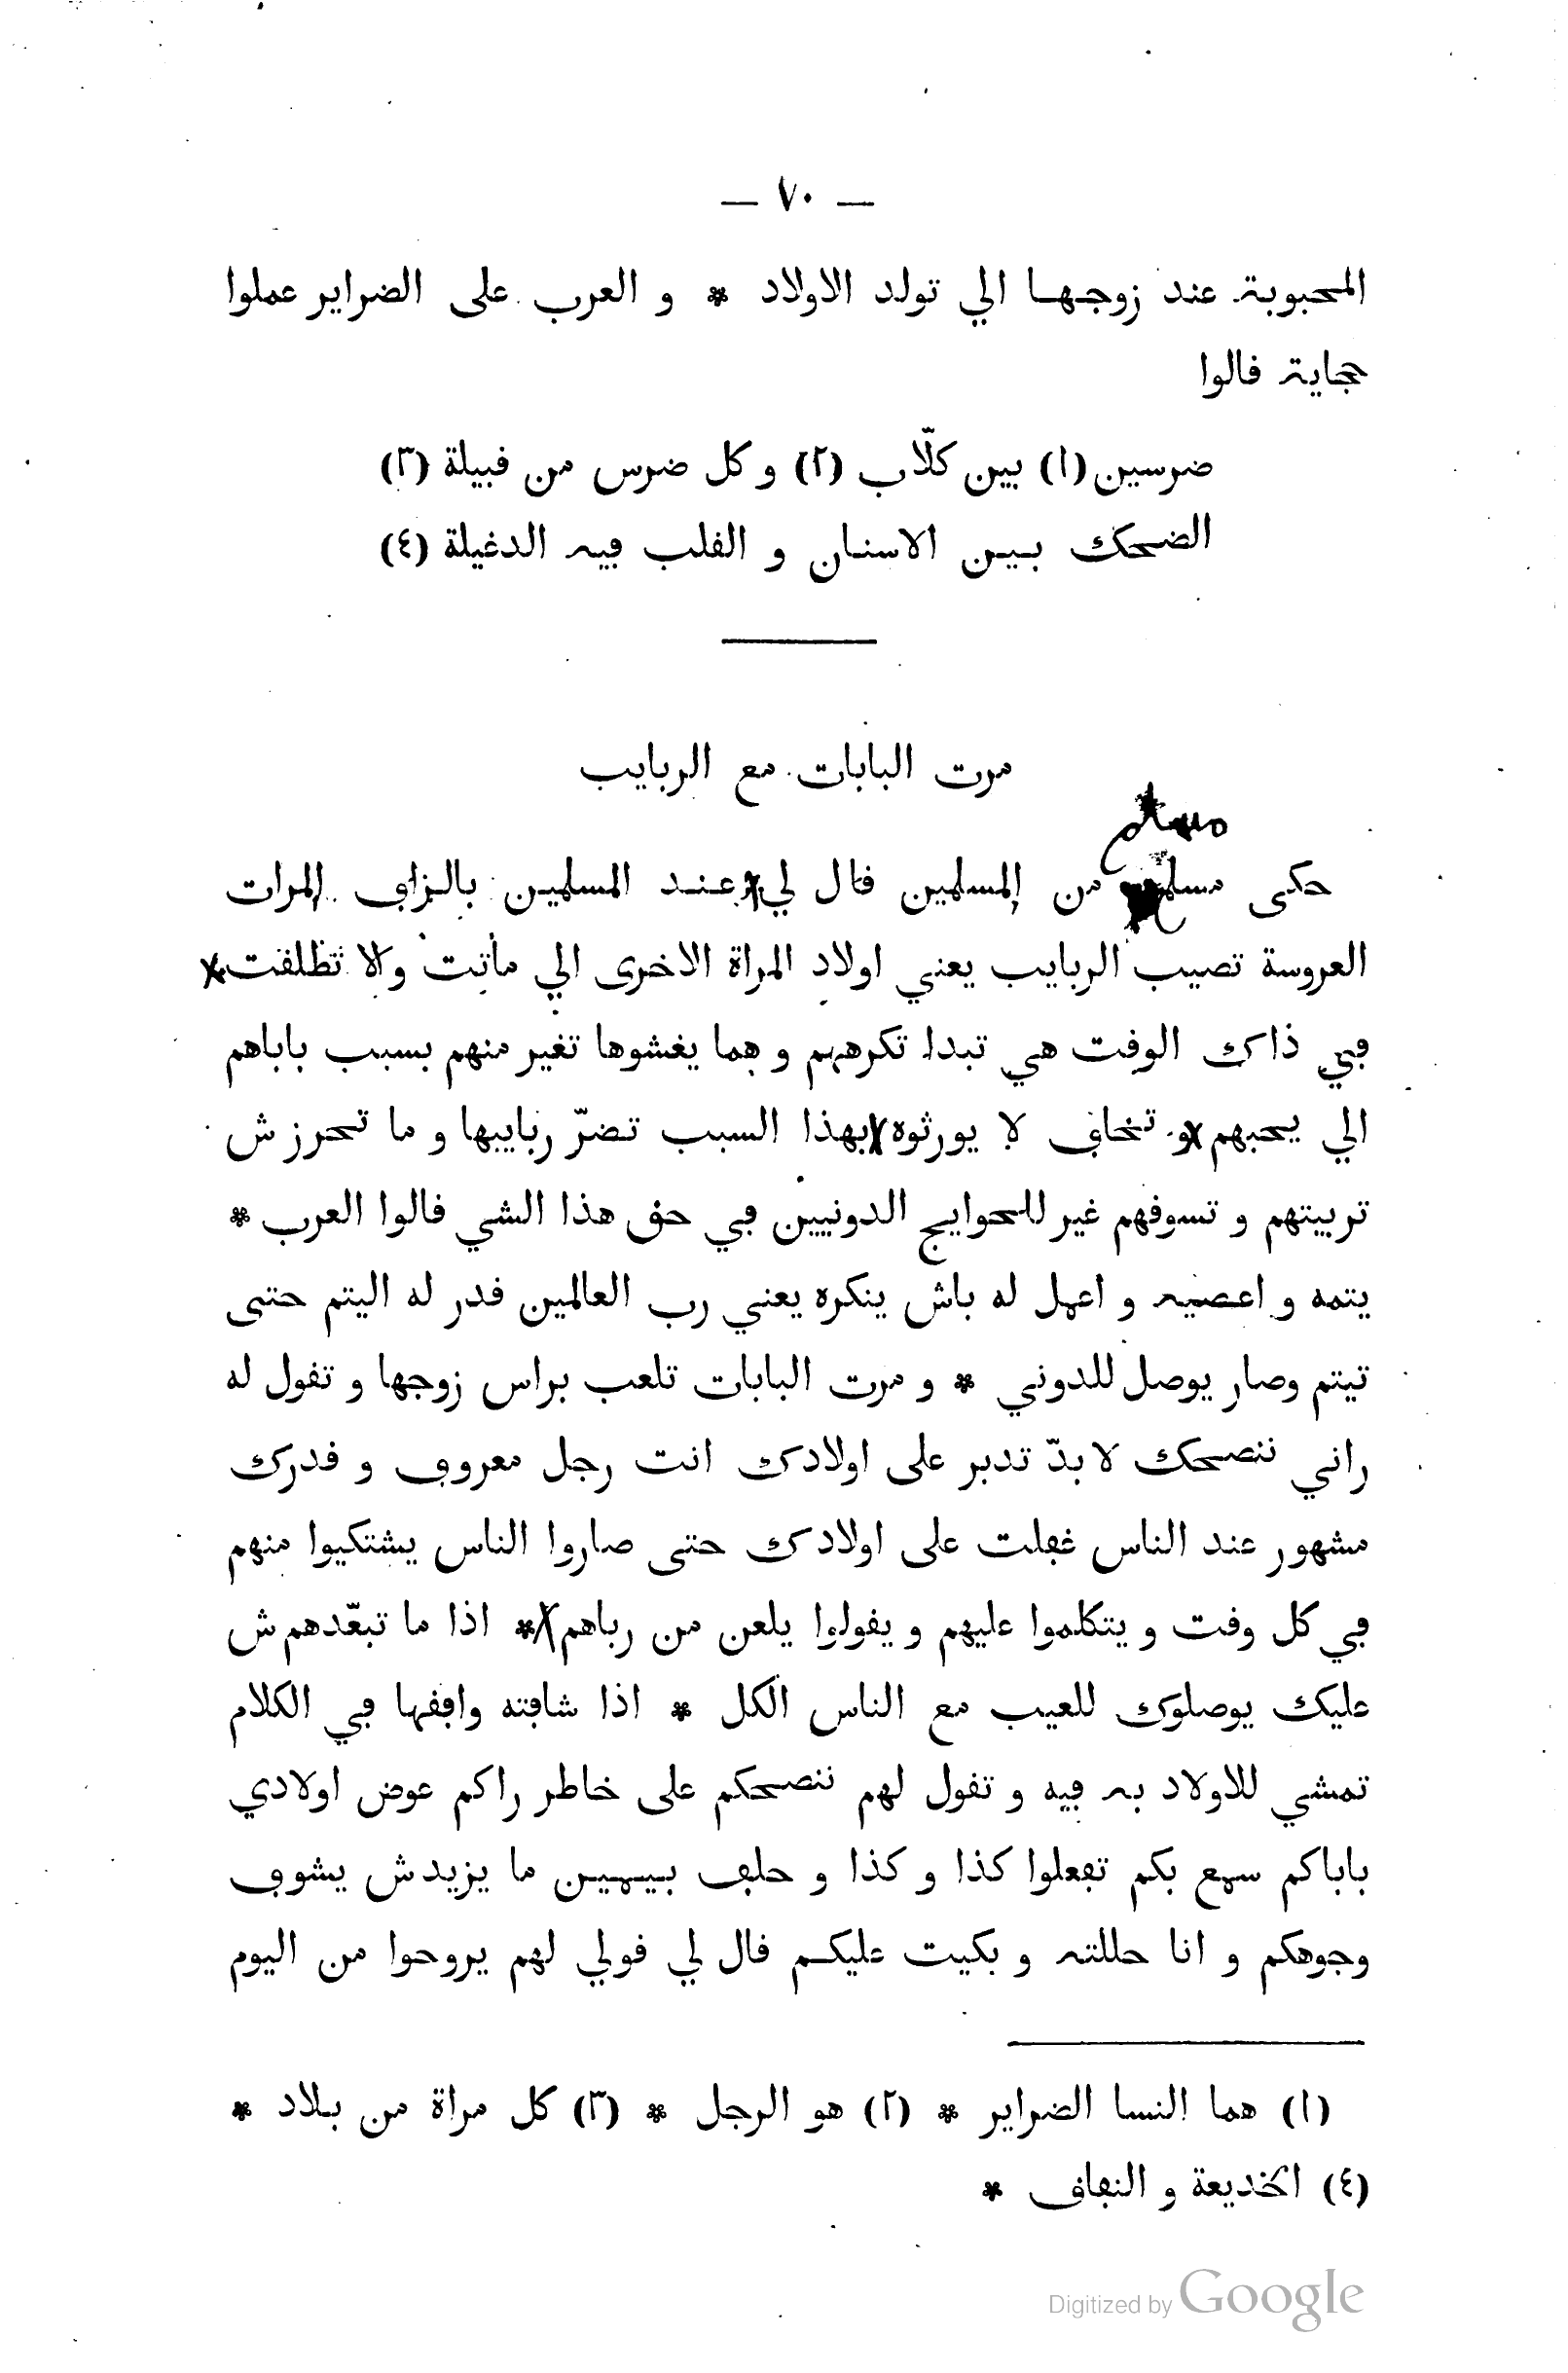 — ٧٠ —
المحبوبة عند زوجها الي تولد الاولاد * و العرب على الضراير عملوا
حجاية قالوا
ضرسين (١) بين كلّاب (٢) و كل ضرس من قبيلة (٣)
الضحك بين الاسنان و القلب فيه الدغيلة (٤)
مرت البابات مع الربايب
مسلم
حكى مسلم من المسلمين قال لي عند المسلمين بالزاف المرات
العروسة تصيب الربايب يعني اولاد المراة الاخرى الي ماتت ولا تطلقت
في ذاك الوقت هي تبدا تكرههم و هما يغشوها تغير منهم بسبب باباهم
الي يحبهم و تخاف لا يورثوه بهذا السبب تضرّ ربايبها و ما تحرز ش
تربيتهم و تسوقهم غير للحوايج الدونيين في حق هذا الشي قالوا العرب *
يتمه و اعصيه و اعمل له باش ينكره يعني رب العالمين قدر له اليتم حتى
تيتم وصار يوصل للدوني * و مرت البابات تلعب براس زوجها و تقول له
راني ننصحك لا بدّ تدبر على اولادك انت رجل معروف و قدرك
مشهور عند الناس غفلت على اولادك حتى صاروا الناس يشتكيوا منهم
في كل وقت و يتكلموا عليهم و يقولوا يلعن من رباهم * اذا ما تبعّدهم ش
عليك يوصلوك للعيب مع الناس الكل * اذا شافته وافقها في الكلام
تمشي للاولاد به فيه و تقول لهم ننصحكم على خاطر راكم عوض اولادي
باباكم سمع بكم تفعلوا كذا و كذا و حلف بيمين ما يزيدش يشوف
وجوهكم و انا حللته و بكيت عليكم قال لي قولي لهم يروحوا من اليوم
(١) هما النسا الضراير * (٢) هو الرجل * (٣) كل مراة من بلاد *
(٤) الخديعة و النفاق *
Digitized by Google